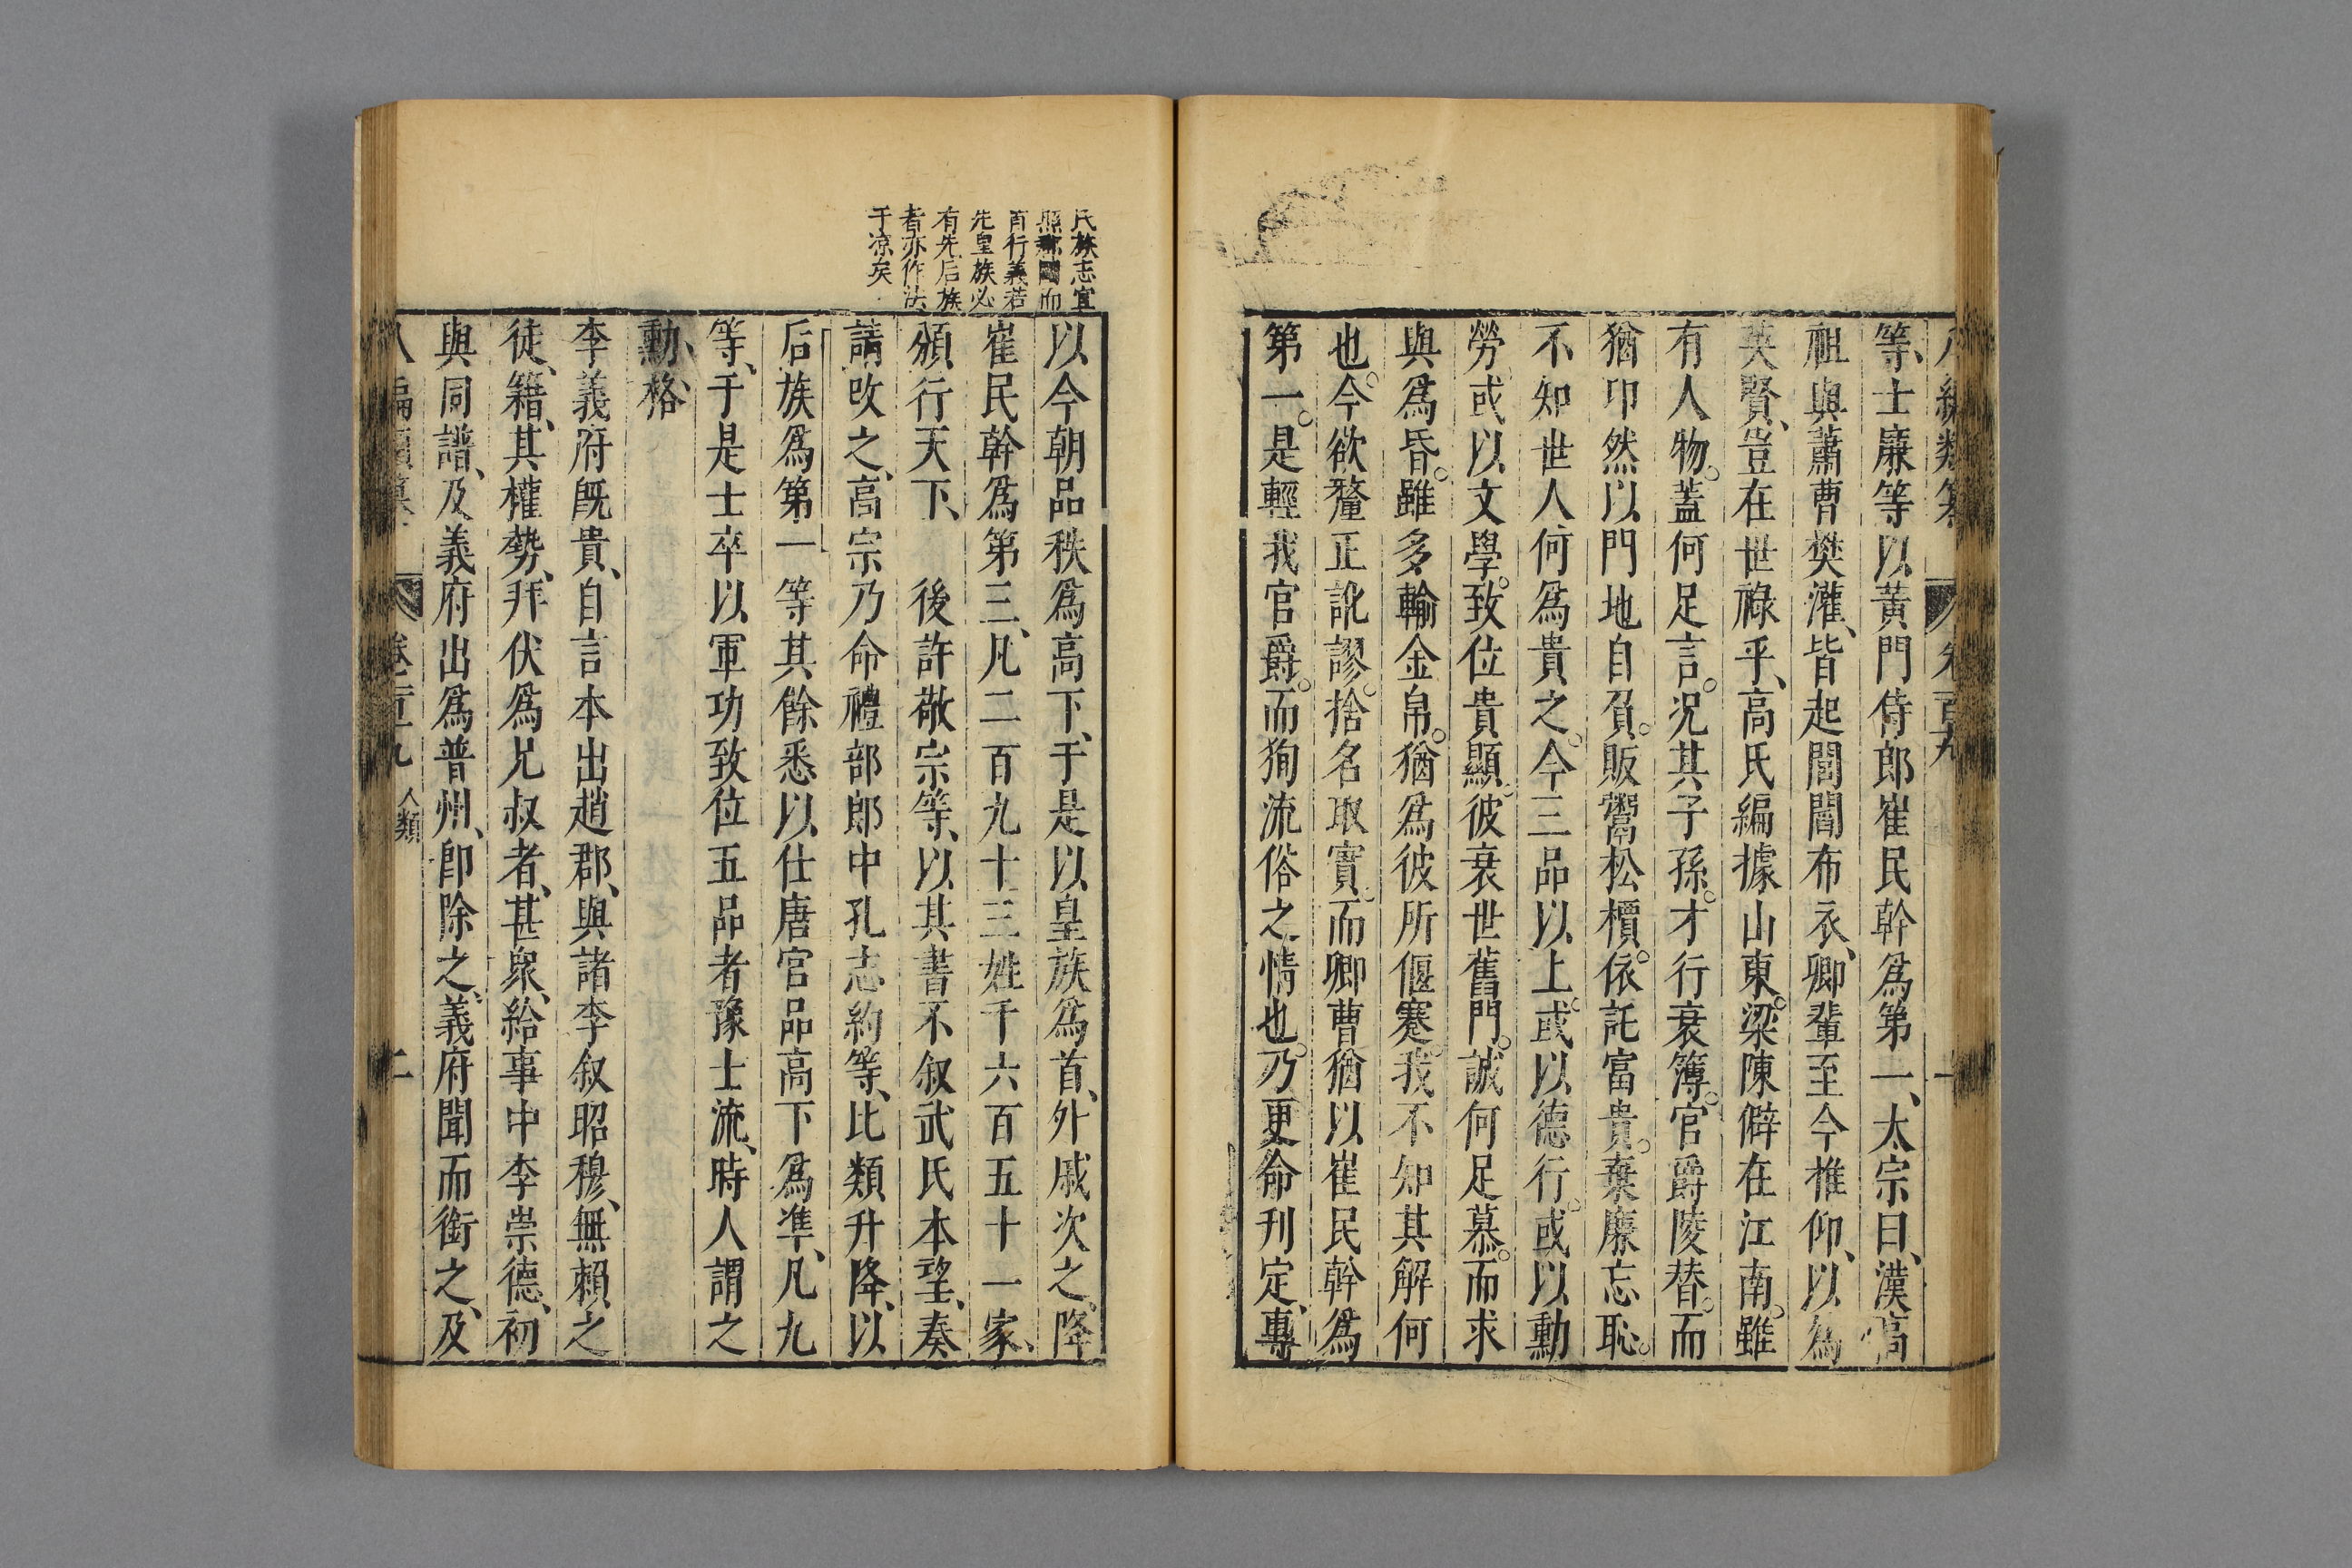 等、士廉等以黃門侍郎崔民幹爲第一、太宗曰、漢高
祖與蕭曹樊灌、皆起閭閻布衣、卿輩至今推仰、以爲
英賢、豈在世祿乎、高氏編據山東。梁陳僻在江南。雖
有人物。蓋何足言。况其子孫。才行衰簿。官爵陵替。而
猶卬然以門地自負。販鬻松檟。依託富貴。棄廉忘恥。
不知世人何爲貴之。今三品以上。或以德行。或以勳
勞。或以文學。致位貴顯。彼衰世舊門。誠何足慕。而求
與爲昏。雖多輸金帛。猶爲彼所偃蹇。我不知其解何
也。今欲釐正訛謬。捨名取實。而卿曹猶以崔民幹爲
第一。是輕我官爵。而狥流俗之情也。乃更命刋定、專
氏族志宜
而
百行義若
先皇族必
有先后族
者亦作法
于凉矣
以今朝品秩爲高下、于是以皇族爲首、外戚次之、降
崔民幹爲第三、凡二百九十三姓千六百五十一家、
頒行天下、　後許敬宗等、以其書不叙武氏本望、奏
請改之、高宗乃命禮部郎中孔志約等、比類升降、以
后族爲第一等其餘悉以仕唐官品高下爲準、凡九
等、于是士卒以軍功致位五品者豫士流、時人謂之
勳格
李義府旣貴、自言本出趙郡、與諸李叙昭穆、無賴之
徒、籍、其權勢、拜伏爲兄叔者、甚衆、給事中李崇德、初
與同譜、及義府出爲普州、卽除之、義府聞而銜之、及
人類